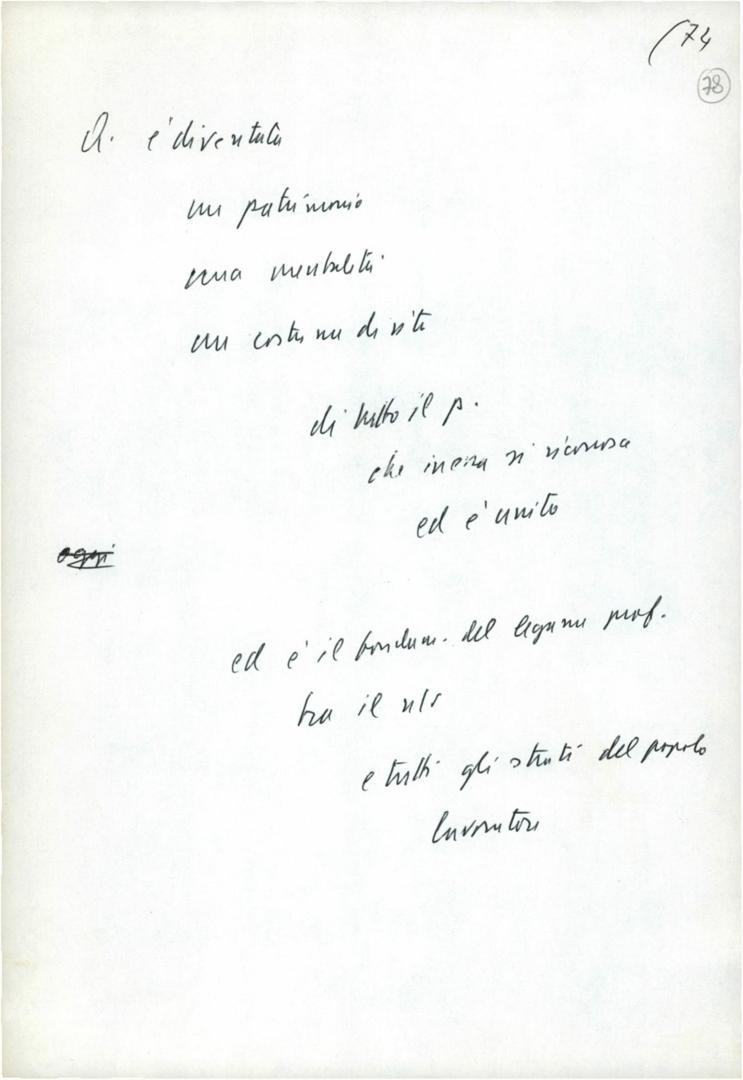 (74
78
D. è diventata
un patrimonio
una mentalità
un costume di vita
di tutto il p.
che in essa si riconosce
ed è unito
oggi
ed è il fondam. del legame prof.
tra il ns
e tutti gli strati del popolo
lavoratore